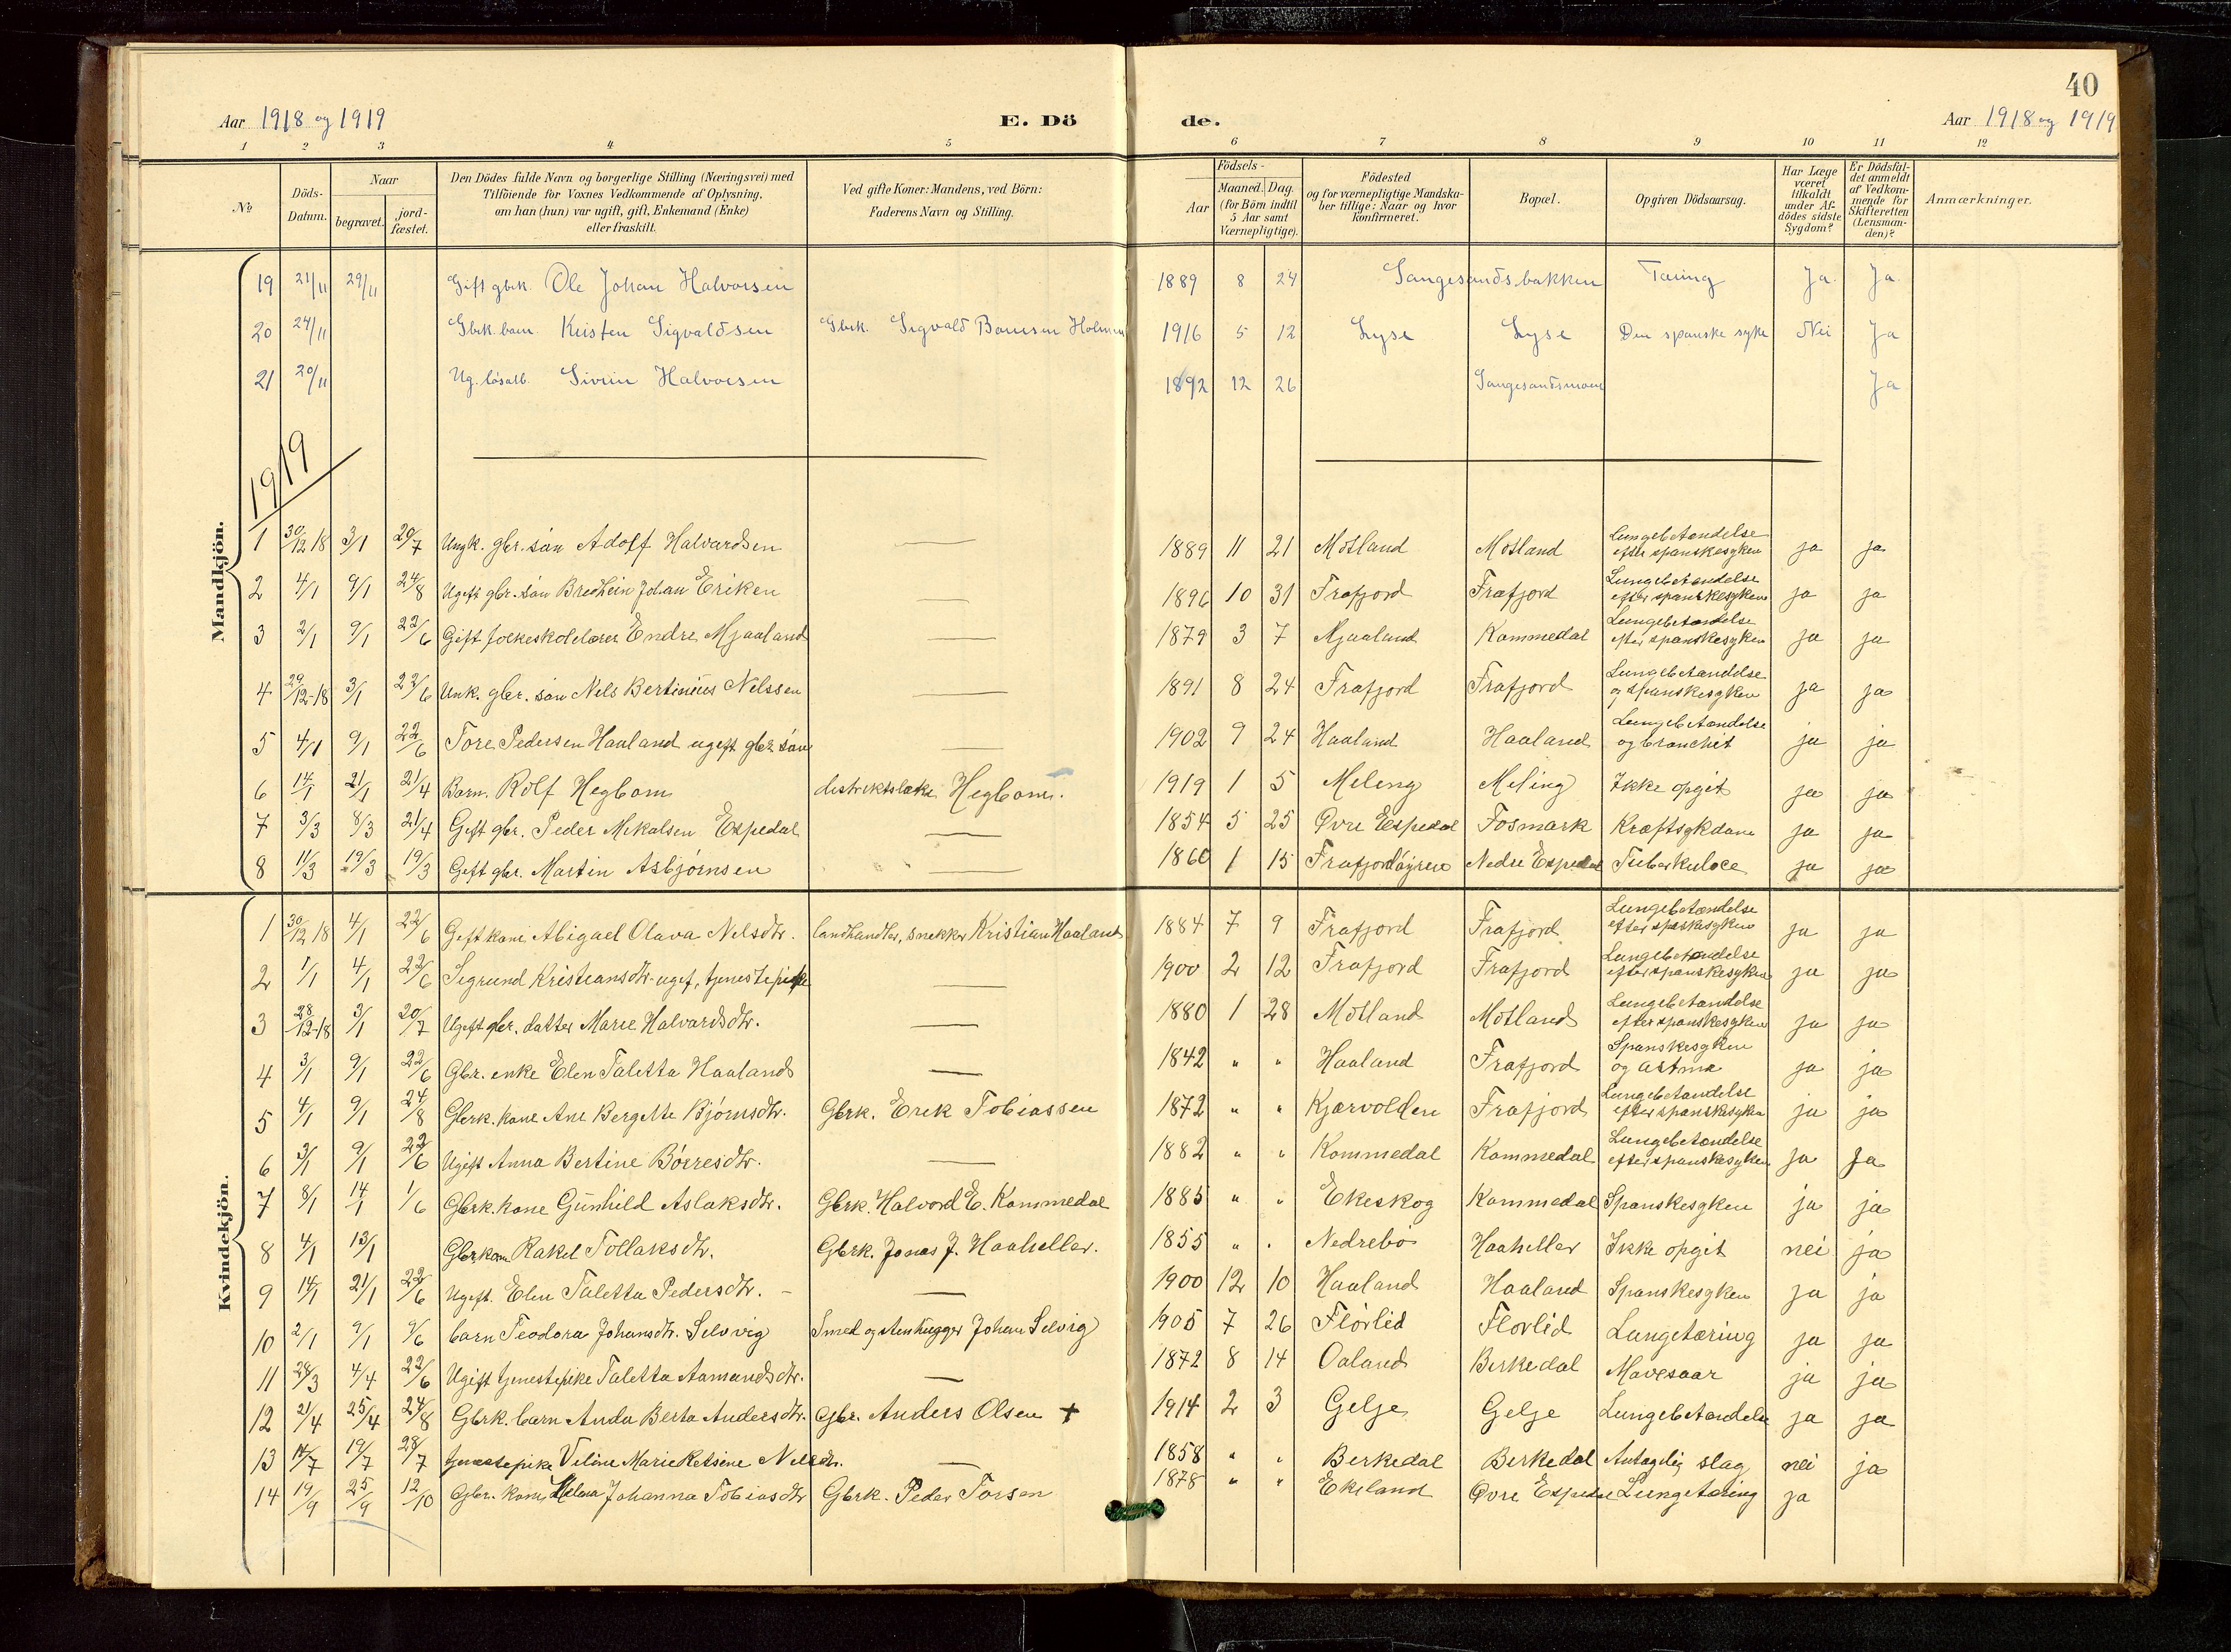 40
Aar 1918 og 1919 E. Dö de. Aar 1918 og 1919
1 2 3 4 5 6 7 8 9 10 11 12
№ Döds-Datum. Naar begravet. jordfæstet. Den Dödes fulde Navn og borgerlige Stilling (Næringsvei) med Tilföiende for Voxnes Vedkommende af Oplysning, om han (hun) var ugift, gift, Enkemand (Enke) eller fraskilt. Ved gifte Koner: Mandens, ved Börn: Faderens Navn og Stilling. Födsels- Aar Maaned. Dag. (for Börn indtil 5 Aar samt Værnepligtige). Födested og for værnepligtige Mandskaber tillige: Naar og hvor konfirmeret. Bopæl. Opgiven Dödsaarsag. Har Læge været tilkaldt under Afdödes sidste Sygdom? Er Dödsfaldet anmeldt af Vedkommende for Skifteretten (Lensmanden)? Anmærkninger.
Mandkjön.
19 21/11 29/11 Gift gbrk. Ole Johan Halvorsen 1889 8 24 Sangesandsbakken Tæring Ja Ja
20 24/11 Gbrk. barn. Kristen Sigvaldsen Gbrk. Sigvald Holmen 1916 5 12 Lyse Lyse Den spanske syke Nei Ja
21 20/11 Ug. løsarb. Sivrin Halvorsen 1892 12 26 Sangesandsmoen Ja
1919
1 30/12 18 3/1 20/7 Ungk. gbr. søn Adolf Halvardsen — 1889 11 21 Motland Motland Lungebetændelse efter spanskesyken ja ja
2 4/1 9/1 24/8 Ugift gbr. søn Johan Eriken — 1896 10 31 Frafjord Frafjord Lungebetændelse efter spanskesyken ja ja
3 2/1 9/1 22/6 Gift folkeskolelærer Endre Mjaaland — 1879 3 7 Mjaaland Kommedal Lungebetændelse efter spanskesyken ja ja
4 29/12-18 3/1 22/6 Unk. gbr. søn Nels Bertinius Nelssen — 1891 8 24 Frafjord Frafjord Lungebetændelse og spanskesyken ja ja
5 4/1 9/1 22/6 Tore Pedersen Haaland ugift gbr søn — 1902 9 24 Haaland Haaland Lungebetændelse og bronchit ja ja
6 14/1 21/1 21/4 Barn. Rolf Hegbom distriktslæke Hegbom. 1919 1 5 Meling Meling Ikke opgit ja ja
7 3/3 8/3 21/4 Gift gbr. Peder Mikalsen Espedal — 1854 5 25 Øvre Espedal Fosmark Kræftsykdom ja ja
8 11/3 19/3 19/3 Gift gbr. Martin Asbjørnsen — 1860 1 15 Frafjordøyren Nedre Espedal Tuberkuloce ja ja
Kvindekjön.
1 30/12 18 4/1 22/6 Gift kone Abigael Olava Nelsdtr. landhandler, snekker Kristian Haaland 1884 7 9 Frafjord Frafjord Lungebetændelse efter spanskesyken ja ja
2 1/1 4/1 22/6 Sigrund Kristiansdtr. ugif, tjenestepike — 1900 2 12 Frafjord Frafjord Lungebetændelse efter spanskesyken ja ja
3 28/12-18 3/1 20/7 Ugift gbr. datter Marie Halvardsdtr. — 1880 1 28 Motland Motland Lungebetændelse efter spanskesyken ja ja
4 3/1 9/1 22/6 Gbr. enke Elen Taletta Haaland — 1842 " " Haaland Frafjord Spanskesyken og Astma ja ja
5 4/1 9/1 24/8 Gbrk. kone Ane Bergitte Bjørnsdtr. Gbrk. Erik Tobiassen 1872 " " Kjærvolden Frafjord Lungebetændelse efter spanskesyken ja ja
6 3/1 9/1 22/6 Ugift Anna Bertine Børresdtr. — 1882 " " Kommedal Kommedal Lungebetændelse efter spanskesyken ja ja
7 8/1 14/1 1/6 Gbrk. kone Gunhild Aslaksdtr. Gbrk. Halvord E. Kommedal 1885 " " Ekeskog Kommedal Spanskesyken ja ja
8 4/1 13/1 Gbr. kone Rakel Tollaksdtr. Gbrk. Jonas J. Haaheller. 1855 " " Nedrebø Haaheller Ikke opgit nei ja
9 14/1 21/1 22/6 Ugift. Elen Taletta Pedersdtr. — 1900 12 10 Haaland Haaland Spanskesyken ja ja
10 2/1 9/1 9/6 barn Teodora Johansdtr. Selvvig Smed og stenhugger Johan Selvig 1905 7 26 Flørlid Flørlid Lungetæring ja ja
11 28/3 4/4 22/6 Ugift tjenestepike Taletta Aamundsdtr. — 1872 8 14 Oaland Birkedal Mavesaar ja ja
12 21/4 25/4 24/8 Gbrk. barn Anda Berta Andersdtr. Gbr. Anders Olsen + 1914 2 3 Gelje Gelje Lungebetændelse ja ja
13 14/7 19/7 28/7 tjenestepike Veline Marie Nelsdtr. — 1858 " " Berkedal Berkedal Antagelig slag nei ja
14 19/9 25/9 12/10 Gbr. kone Helena Johanna Tobiasdtr Gbrk. Peder Torsen 1878 " " Ekeland Øvre Espedal Lungetæring ja